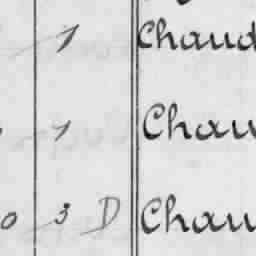 1 Chaud
1 Chau
0 3 D Chau